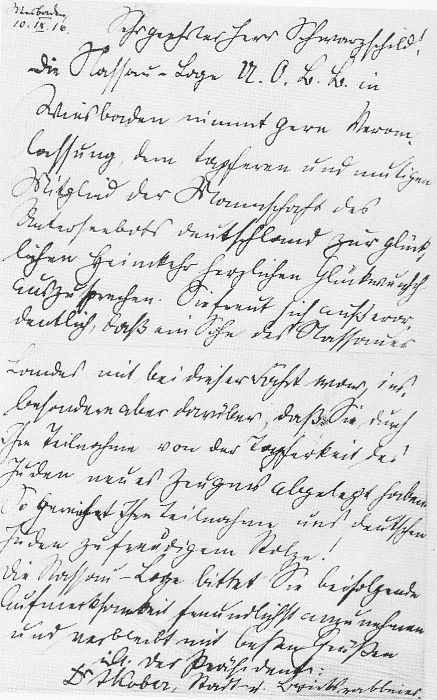 Wiesbaden,
10. IX. 16.
Sehr geehrter Herr Schwarzschild!
Die Nassau-Loge U. O. B. B. in
Wiesbaden nimmt gern Veran-
lassung, dem tapferen und mutigen
Mitglied der Mannschaft des
Unterseeboots Deutschland zur glück-
lichen Heimkehr herzlichen Glückwunsch
auszusprechen. Sie freut sich außeror-
dentlich, daß ein Sohn des Nassauer
Landes mit bei dieser Fahrt war, ins-
besondere aber darüber, daß Sie durch
Ihre Teilnahme von der Tapferkeit der
Juden neues Zeugnis abgelegt haben.
So gereicht Ihre Teilnahme uns deutschen
Juden zu freudigem Stolze!
Die Nassau-Loge bittet Sie beifolgende
Aufmerksamkeit freundlichst anzunehmen
und verbleibt mit besten Grüßen
der Präsident:
Dr Kober, Stadt- u. Bezirksrabbiner